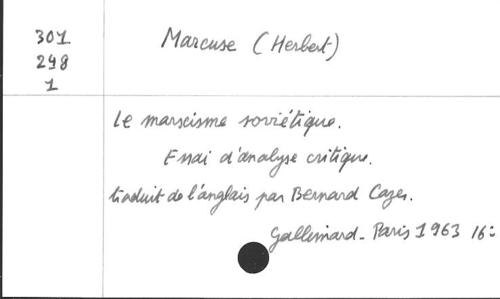 301
298
1
Marcuse (Herbert)
Le marxisme soviétique.
Essai d'analyse critique.
traduit de l'anglais par Bernard Cazes.
Gallimard - Paris 1963 16°